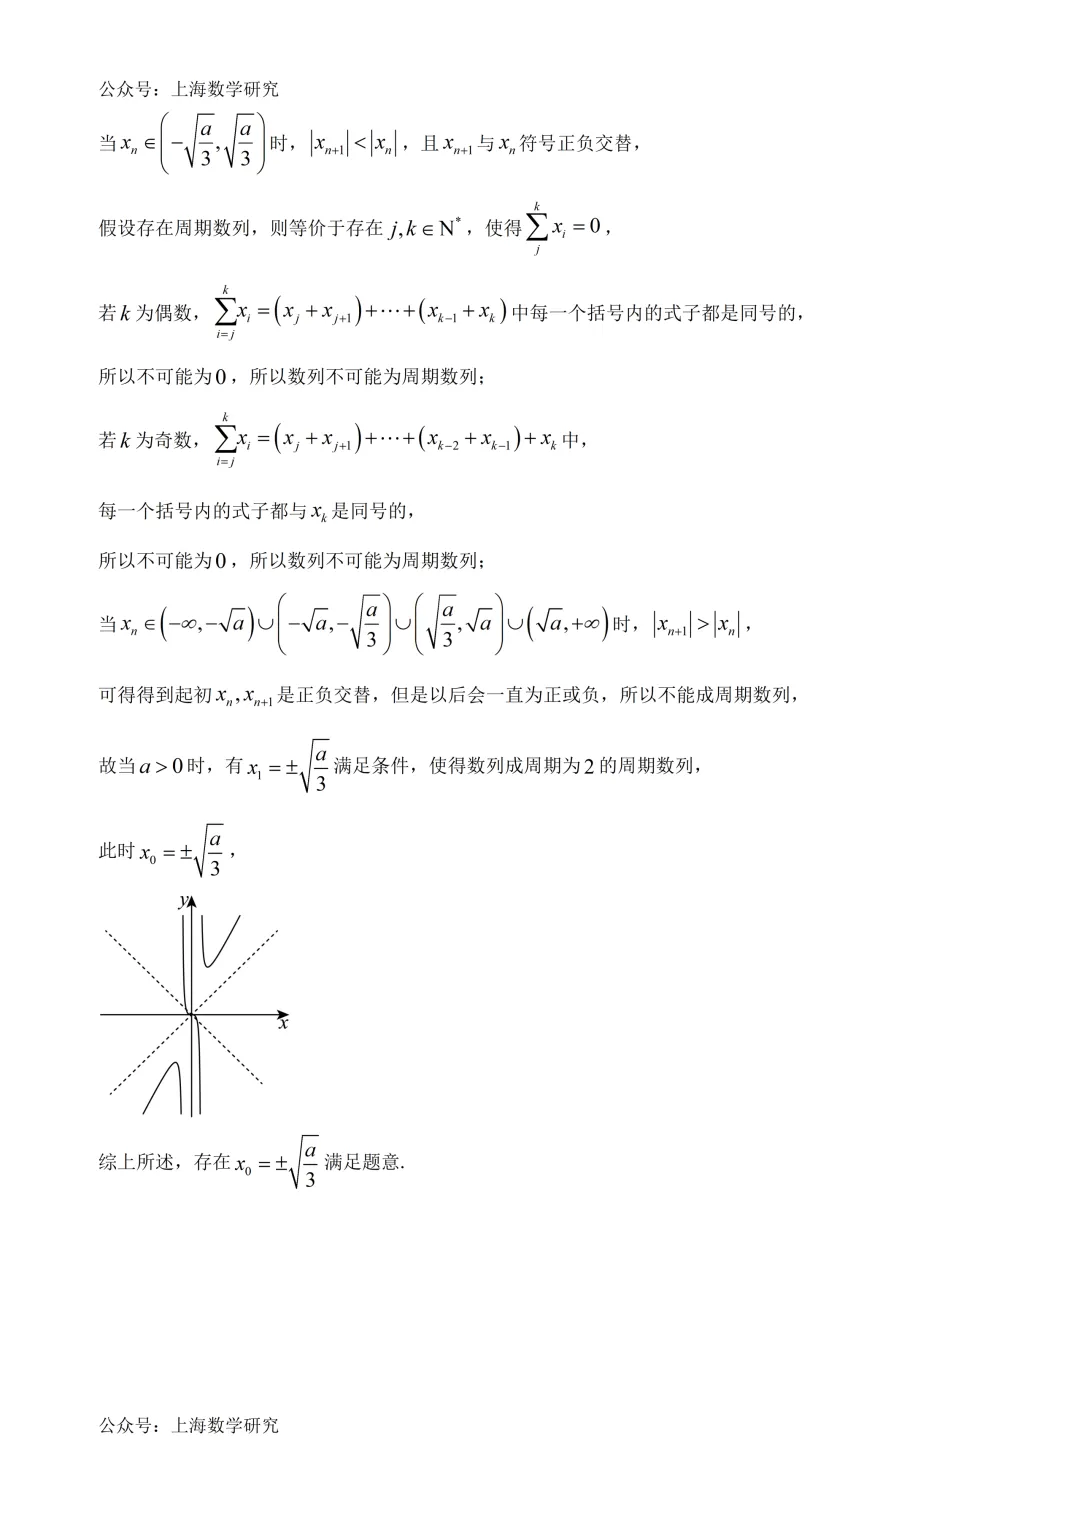 公众号：上海数学研究
当 $x_n \in \left(-\sqrt{\frac{a}{3}}, \sqrt{\frac{a}{3}}\right)$ 时，$|x_{n+1}| < |x_n|$，且 $x_{n+1}$ 与 $x_n$ 符号正负交替，
假设存在周期数列，则等价于存在 $j, k \in \mathrm{N}^*$，使得 $\sum_{j}^{k} x_i = 0$，
若 $k$ 为偶数，$\sum_{i=j}^{k} x_i = (x_j + x_{j+1}) + \cdots + (x_{k-1} + x_k)$ 中每一个括号内的式子都是同号的，
所以不可能为 0，所以数列不可能为周期数列；
若 $k$ 为奇数，$\sum_{i=j}^{k} x_i = (x_j + x_{j+1}) + \cdots + (x_{k-2} + x_{k-1}) + x_k$ 中，
每一个括号内的式子都与 $x_k$ 是同号的，
所以不可能为 0，所以数列不可能为周期数列；
当 $x_n \in (-\infty, -\sqrt{a}) \cup \left(-\sqrt{a}, -\sqrt{\frac{a}{3}}\right) \cup \left(\sqrt{\frac{a}{3}}, \sqrt{a}\right) \cup (\sqrt{a}, +\infty)$ 时，$|x_{n+1}| > |x_n|$，
可得得到起初 $x_n, x_{n+1}$ 是正负交替，但是以后会一直为正或负，所以不能成周期数列，
故当 $a > 0$ 时，有 $x_1 = \pm\sqrt{\frac{a}{3}}$ 满足条件，使得数列成周期为 2 的周期数列，
此时 $x_0 = \pm\sqrt{\frac{a}{3}}$，
y
x
综上所述，存在 $x_0 = \pm\sqrt{\frac{a}{3}}$ 满足题意.
公众号：上海数学研究